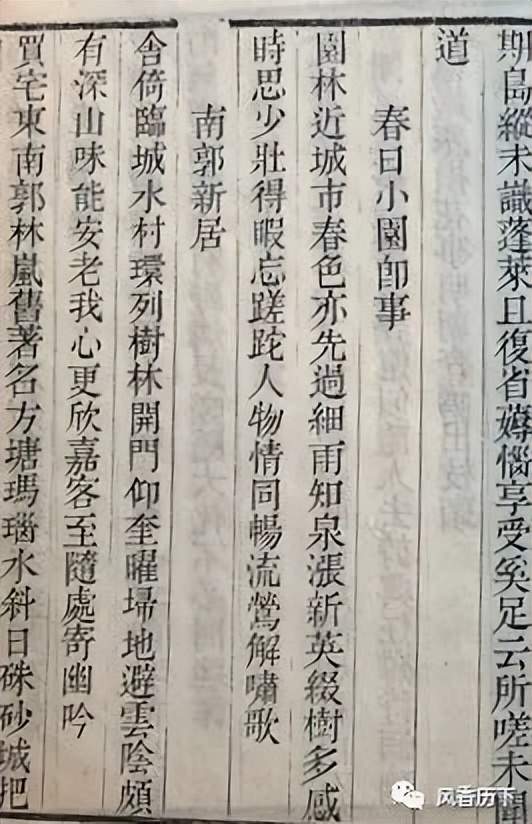 期島縱未識蓬萊且復省薅惱享受奚足云所嗟未聞
道
春日小園卽事
園林近城市春色亦先過細雨知泉漲新英綴樹多感
時思少壯得暇忘蹉跎人物情同暢流鶯解嘯歌
南郭新居
舍倚臨城水村環列樹林開門仰奎曜埽地避雲陰頗
有深山味能安老我心更欣嘉客至隨處寄幽吟
買宅東南郭林嵐舊著名方塘瑪瑙水斜日硃砂城把
风香历下